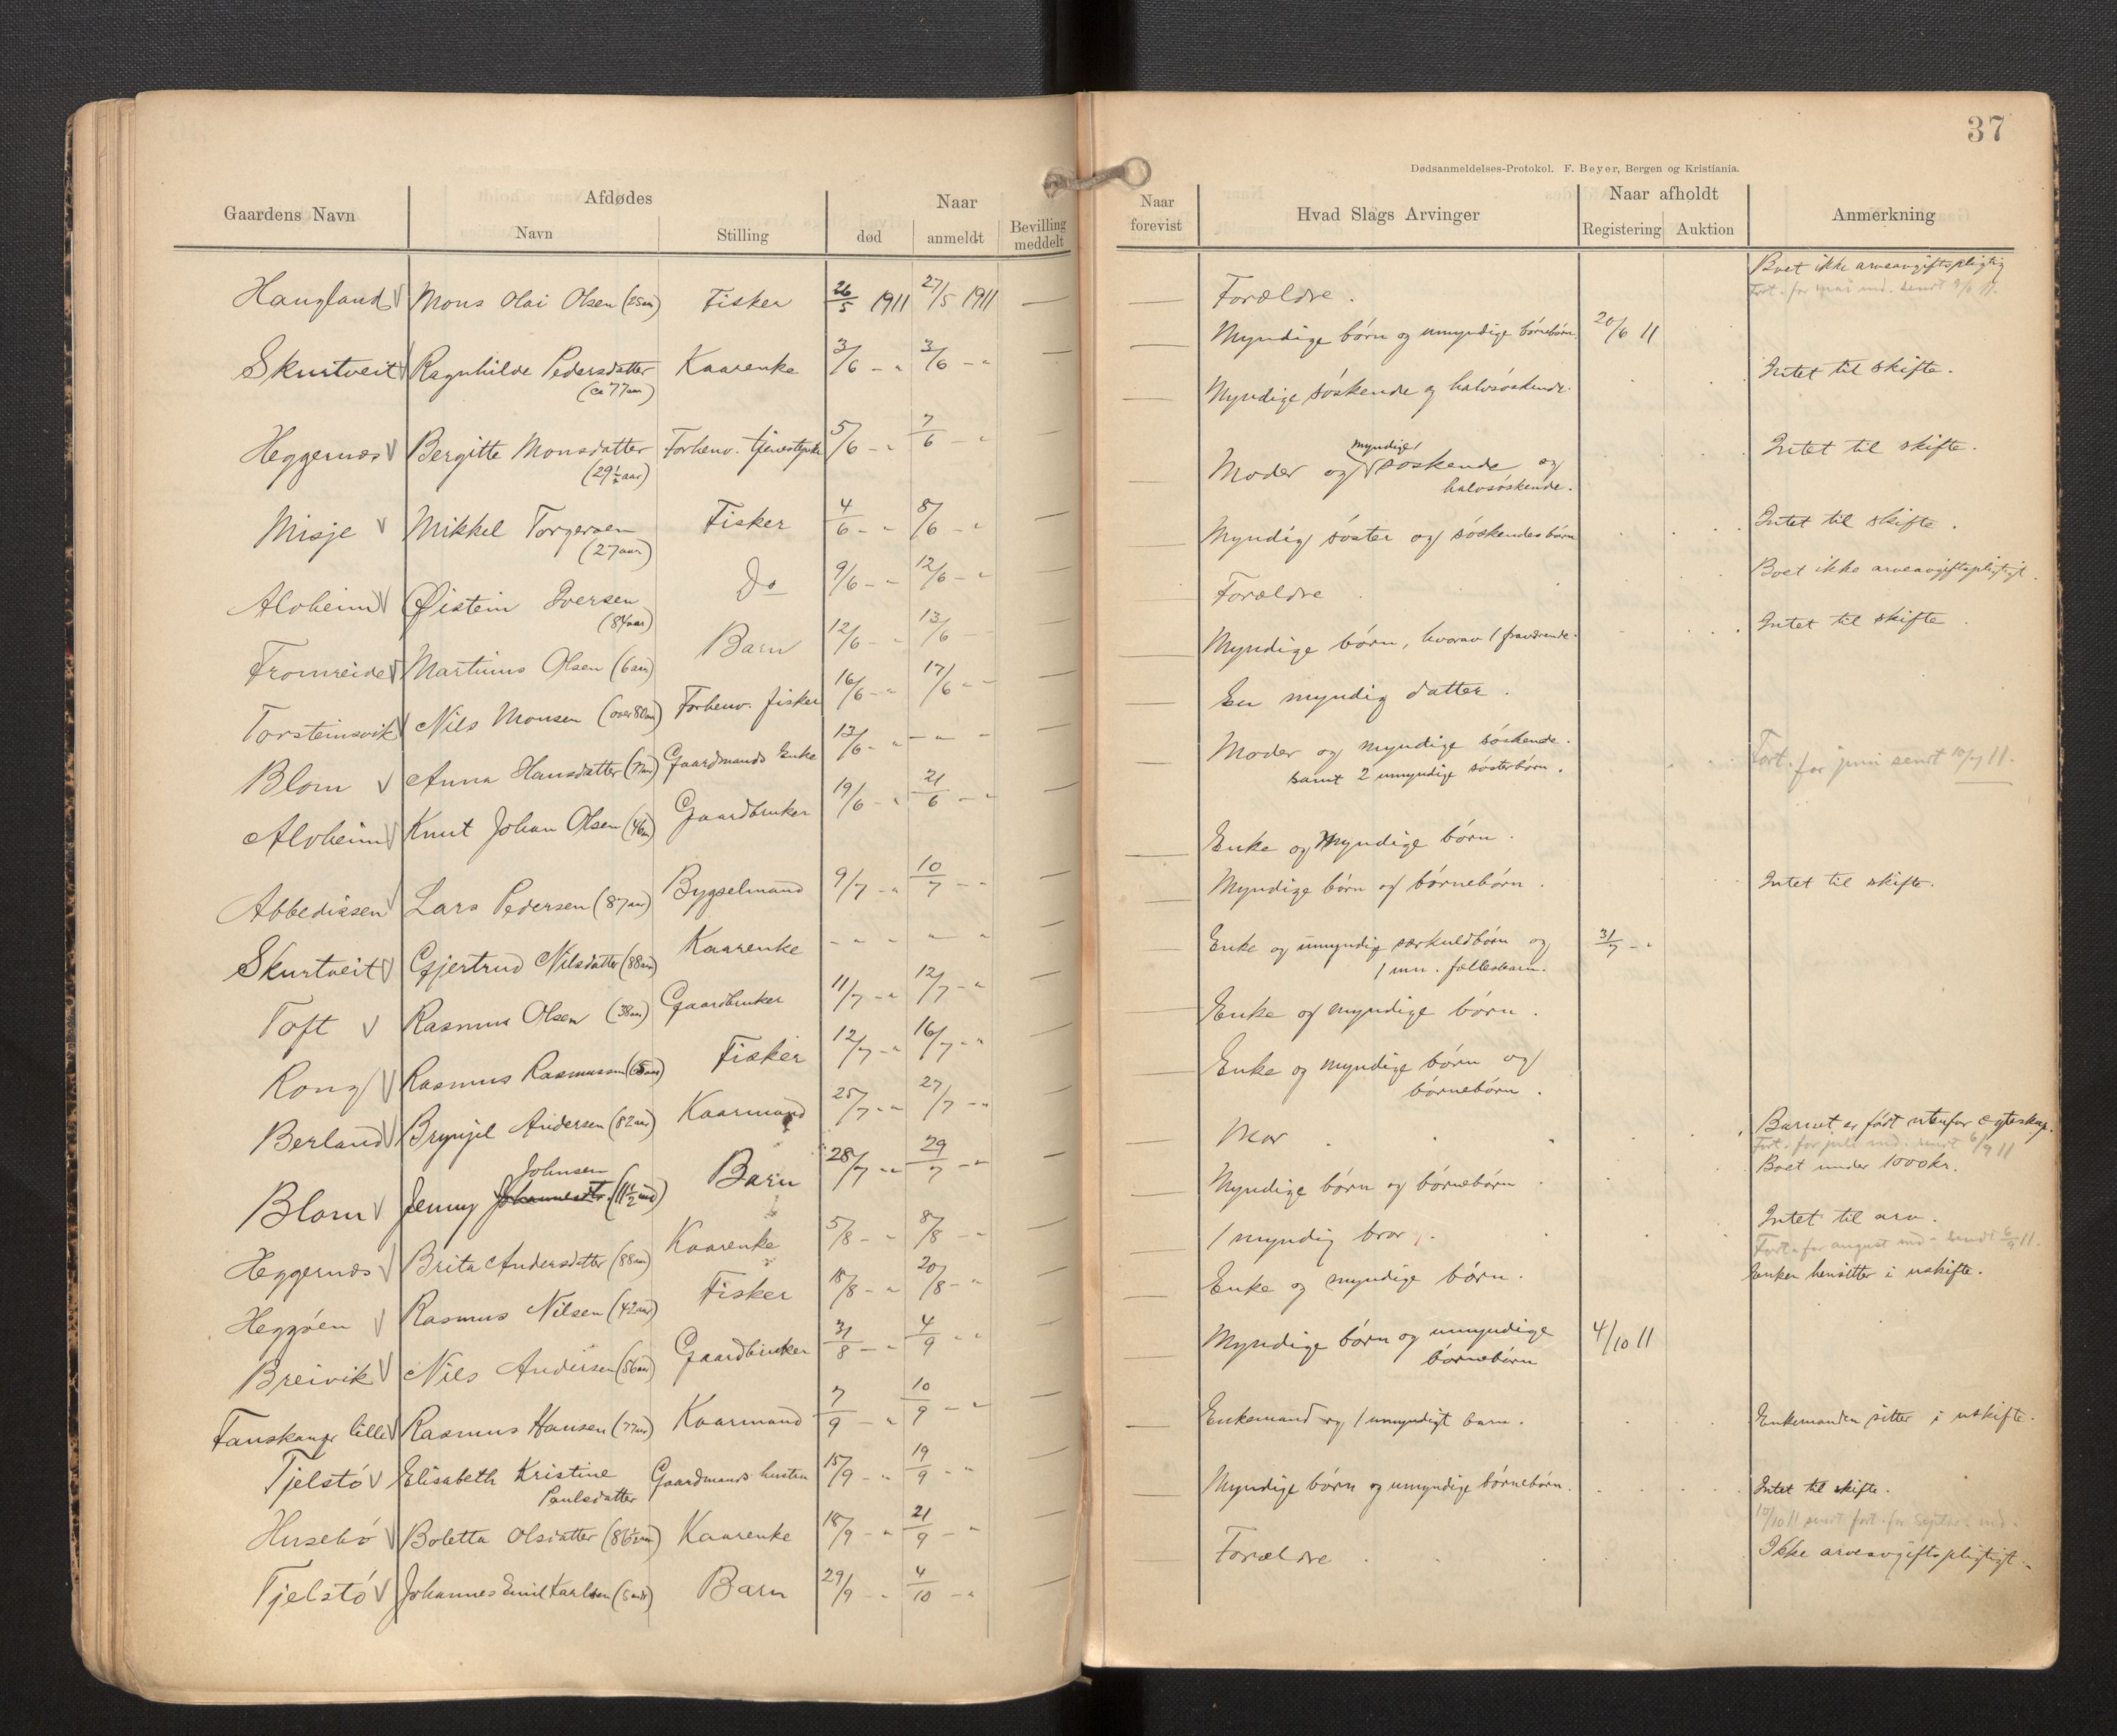 37
Dødsanmeldelses-Protokol. F. Beyer, Bergen og Kristiania.
Gaardens Navn
Afdødes
Navn
Stilling
Naar
død
anmeldt
Bevilling meddelt
Haugland V Mons Olai Olsen (25aar) Fisker 26/5 1911 27/5 1911 —
Skurtveit V Ragnhilde Pedersdatter Kaarenke 3/6 - " 3/6 - " —
(ca 77 aar)
Heggernæs V Bergitte Monsdatter Forhenv. tjenestpike 5/6 - " 7/6 - " —
(29½ aar)
Misje V Mikkel Torgersen Fisker 4/6 - " 8/6 - " —
(27 aar)
Alvheim V Øistein Iversen Do 9/6 - " 12/6 - " —
(84 aar)
Fromreide V Martinus Olsen (6 aar) Barn 12/6 - " 13/6 - —
Torsteinsvik V Nils Monsen (over 80 aar) Forhenv. fisker 16/6 - " 17/6 - " —
Blom V Anna Hansdatter Gaardmands Enke 13/6 - " - " - —
Alvheim V Knut Johan Olsen (46 aar) Gaardbruker 19/6 - " 21/6 - " —
Abbedissen V Lars Pedersen (87 aar) Bygselmand 9/7 - " 10/7 - " —
Skurtveit V Gjertrud Nilsdatter (88 aar) Kaarenke - " - " - " —
Toft V Rasmus Olsen (38 aar) Gaardbruker 11/7 - " 12/7 - " —
Rong V Rasmus Rasmussen (65 aar) Fisker 12/7 - " 16/7 - " —
Berland V Brynjel Andersen (82 aar) Kaarmand 25/7 - " 27/7 - " —
Johnsen
Blom V Jenny Johannesdtr. (11½ md) Barn 28/7 - " 29/7 - " —
Heggernæs V Brita Andersdatter (88 aar) Kaarenke 5/8 - " 8/8 - " —
Heggøen V Rasmus Nilsen (42 aar) Fisker 18/8 - " 20/8 - " —
Breivik V Nils Andersen (86 aar) Gaardbruker 31/8 - " 4/9 - " —
Fanskanger lille V Rasmus Hansen (77 aar) Kaarmand 7/9 - " 10/9 - " —
Tjelstø V Elisabeth Kristine Gaardmands hustru 15/9 - " 19/9 - " —
Paulsdatter
Husebø V Boletta Olsdatter (86½ aar) Kaarenke 18/9 - " 21/9 - " —
Tjelstø V Johannes Emil Karlsen (5 mdr) Barn 29/9 - " 4/10 - " —
Naar forevist
Hvad Slags Arvinger
Naar afholdt
Registering
Auktion
Anmerkning
— Forældre. Boet ikke arveavgiftspligtig
Fort. for mai md. sendt 9/6 11.
— Myndige børn og umyndige børnebørn. 20/6 11
— Myndige søskende og halvsøskende. Intet til skifte.
— Moder og myndige søskende og Intet til skifte.
halvsøskende.
— Myndig søster og søskendesbørn Intet til skifte.
— Forældre Boet ikke arveavgiftspligtigt.
— Myndige børn, hvorav 1 fraværende. Intet til skifte
— En myndig datter.
— Moder og myndige søskende. Fort. for juni sendt 10/7 11.
samt 2 umyndige søsterbørn.
— Enke og Myndige børn.
— Myndige børn og børnebørn. Intet til skifte.
— Enke og umyndig særkuldbørn og 31/7 - "
1 um. fællesbarn.
— Enke og myndige børn.
— Enke og myndige børn og
børnebørn.
— Mor Barnet er født utenfor egteskap.
Fort. for juli md. sendt 6/9 11
— Myndige børn og børnebørn. Boet under 1000 kr.
— 1 myndig bror. Intet til arv.
Fort. for august md. sendt 6/9 11.
— Enke og myndige børn. Enken hensitter i uskifte.
— Myndige børn og umyndige 4/10 11
børnebørn
— Enkemand og 1 umyndigt barn. Enkemanden sitter i uskifte.
— Myndige børn og umyndige børnebørn. Intet til skifte.
10/10 11 sendt fort. for Septbr. md.
— Forældre Ikke arveavgiftspligtigt.